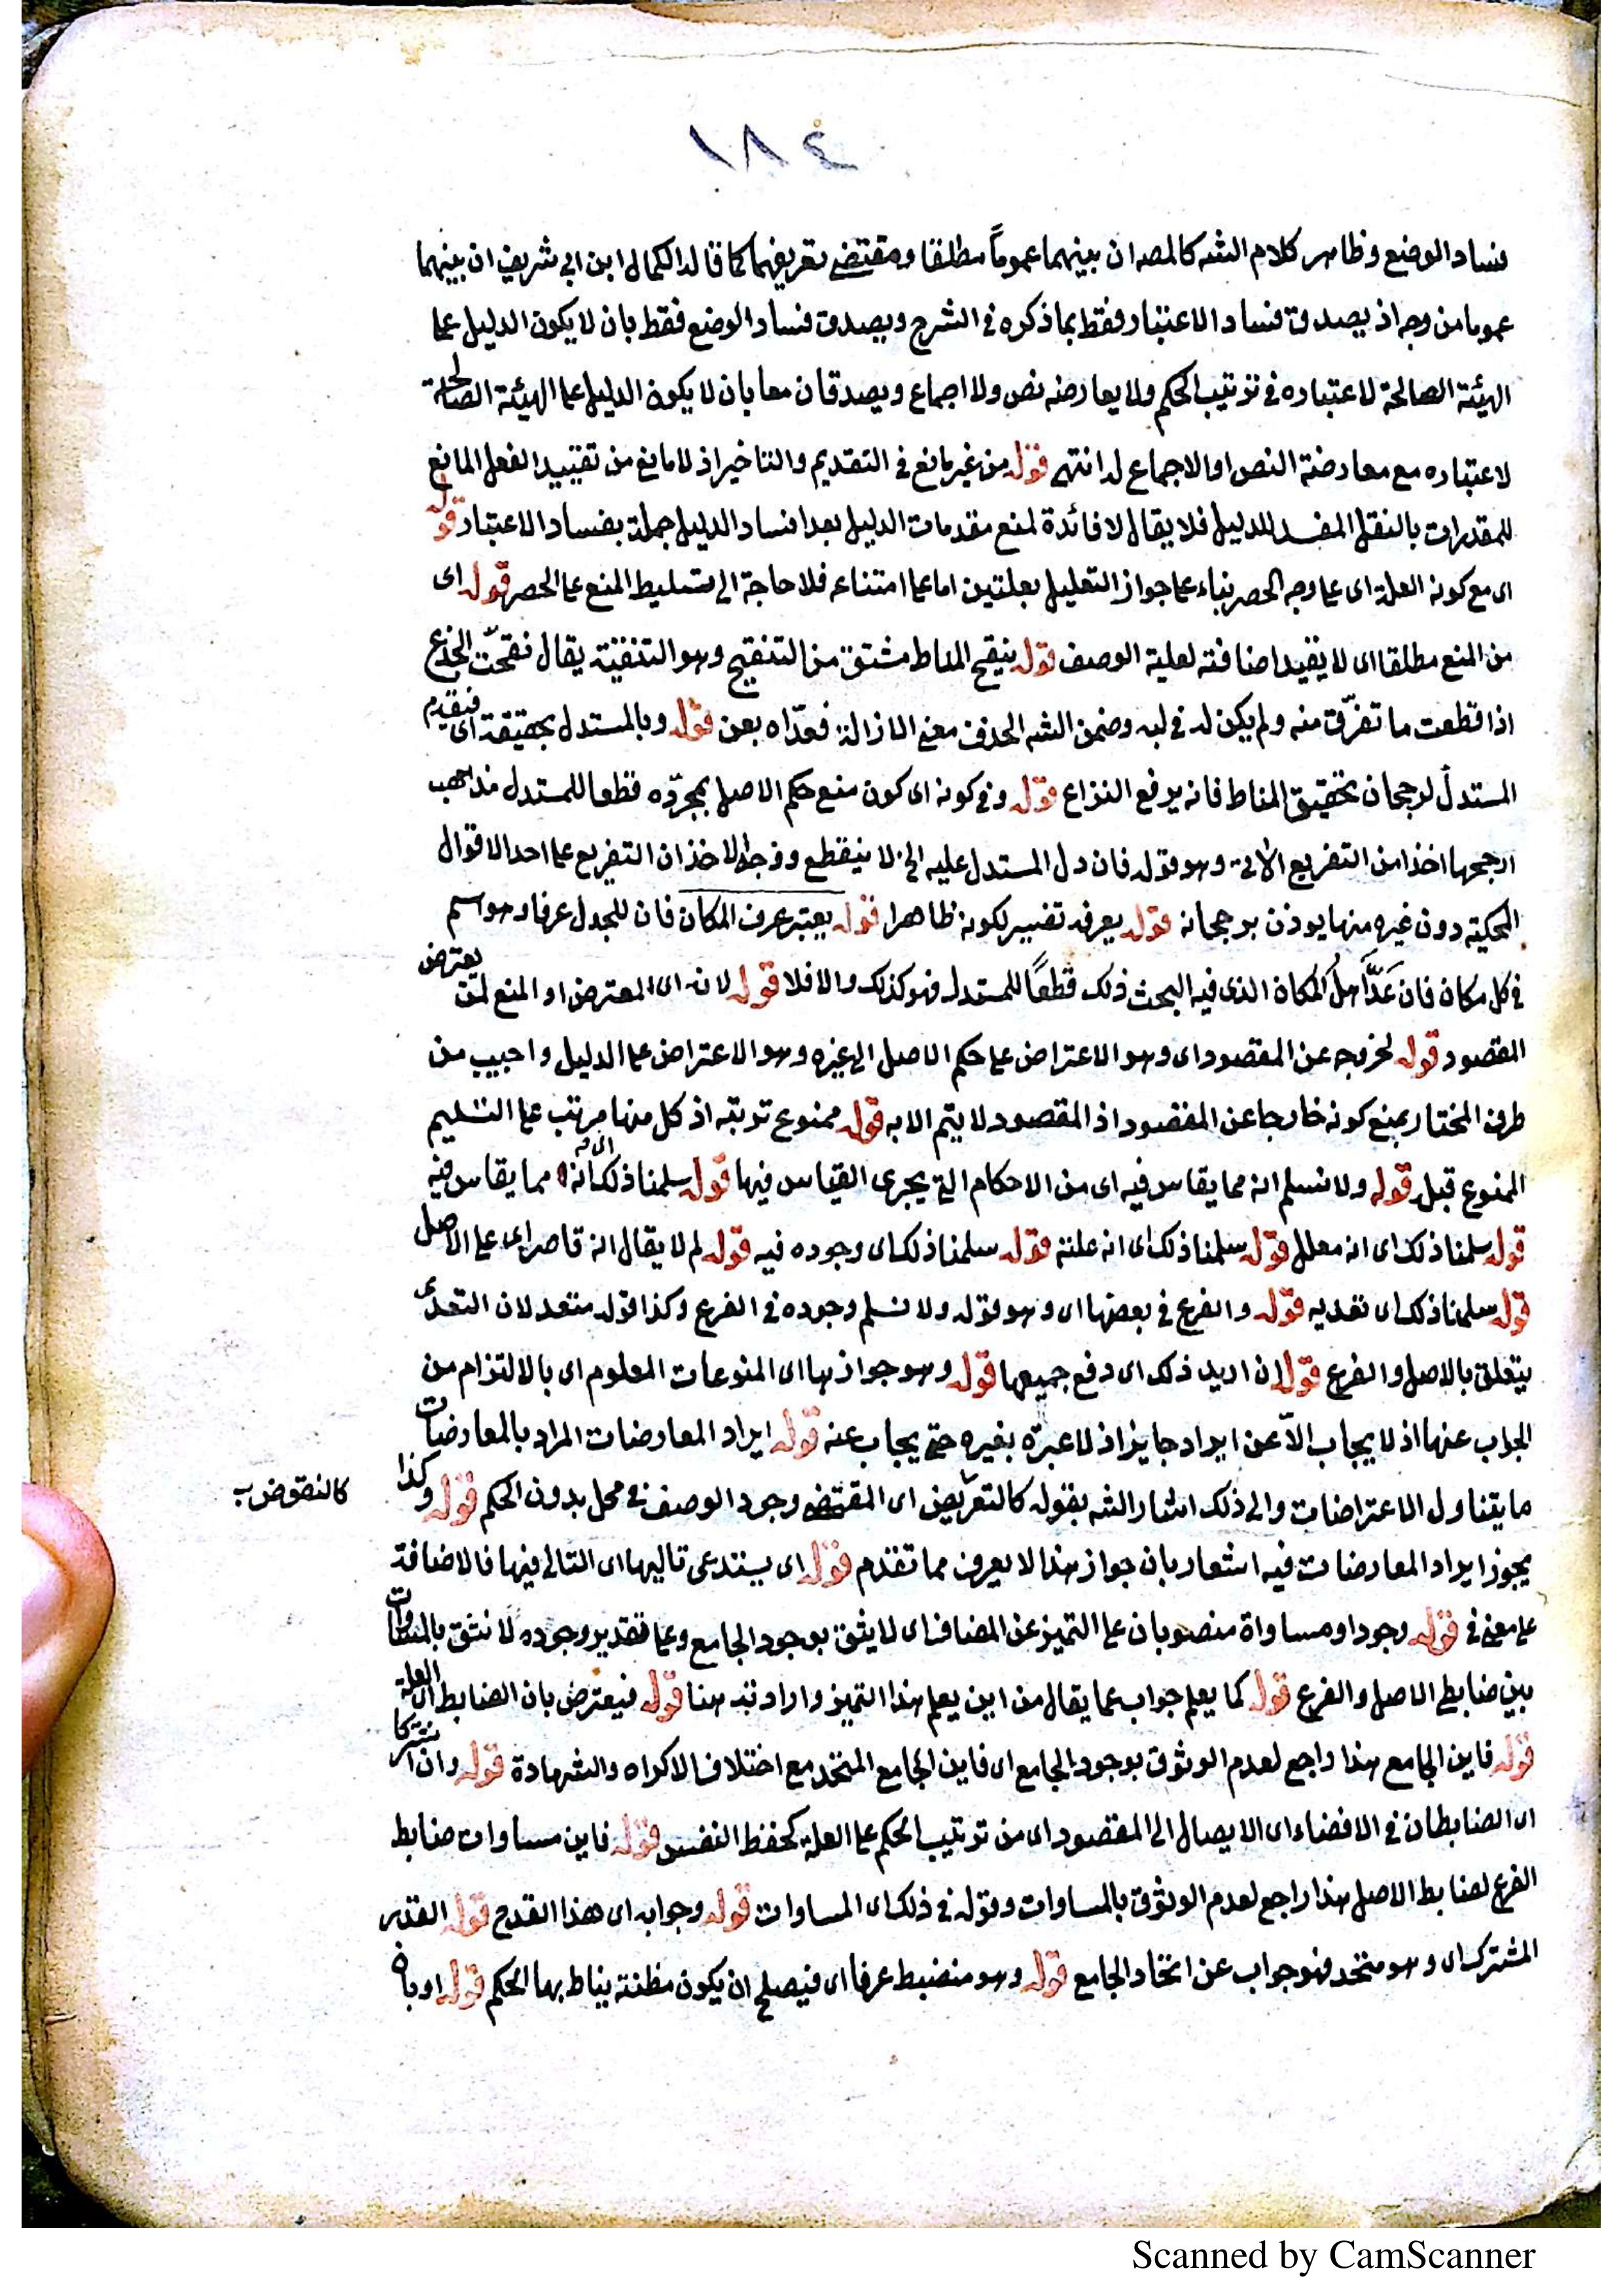 ١٨٤
فساد الوضع وظاهر كلام الشه كالمصه ان بينهما عموماً مطلقا ومقتضى تعريفهما كما قاله الكمال ابن ابى شريف ان بينهما
عموما من وجه اذ يصدق فساد الاعتبار فقط بما ذكره فى الشرح ويصدق فساد الوضع فقط بان لا يكون الدليل على
الهيئة الصالحة لاعتباره فى ترتيب الحكم ولا يعارضه نص ولا اجماع ويصدقان معا بان لا يكون الدليل على الهيئة الصالحة
لاعتباره مع معارضة النص او الاجماع له انتهى قوله من غير مانع فى التقديم والتاخير اذ لا مانع من تقييد الفعل المانع
للمقدرات بالنقل المفسد للدليل فلا يقال لا فائدة لمنع مقدمات الدليل بعد افساد الدليل جملة بفساد الاعتبار قوله
اى مع كونه العلة اى على وجه الحصر بناء على جواز التعليل بعلتين اما على امتناعه فلا حاجة الى تسليط المنع على الحصر قوله اى
من المنع مطلقا اى لا يفيد اضافته لعلية الوصف قوله بنقيح المناط مشتق من التنقيح وهو التنقية يقال نقحت الجذع
اذا قطعت ما تفرّق منه ولم يكن له فى لبه وضمن الشه الحذف معنى الازالة فعدّاه بعن قوله وبالمستدل بحقيقة اى فيقدم
المستدل لرجحان تحقيق المناط فانه يرفع النزاع قوله وفى كونه اى كون منع حكم الاصل بمجرّده قطعا للمستدل مذاهب
ارجحها اخذا من التفريع الآتى وهو قوله فان دل المستدل عليه الخ لا ينقطع ووجه الاخذ ان التفريع على احد الاقوال
المحكية دون غيره منها يوذن برجحانه قوله يعرف تفسير لكونه ظاهرا قوله يعتبر عرف المكان فان للجدل عرفا ومواسم
فى كل مكان فان عَدَّ اهلُ المكان الذى فيه البحث ذلك قطعًا للمستدل فهو كذلك والا فلا قوله لانه اى المعترض او المنع لم يعترض
المقصود قوله لخروجه عن المقصود اى وهو الاعتراض على حكم الاصل الى غيره وهو الاعتراض على الدليل واجيب من
طرف المختار بمنع كونه خارجا عن المقصود اذ المقصود لا يتم الا به قوله ممنوع ترتبه اذ كل منها مرتب على التسليم
الممنوع قبله قوله ولا نسلم انه مما يقاس فيه اى من الاحكام التى يجرى القياس فيها قوله سلمنا ذلك اى انه مما يقاس فيه
قوله سلمنا ذلك اى انه معلل قوله سلمنا ذلك اى انه علته قوله سلمنا ذلك اى وجوده فيه قوله لم لا يقال انه قاصر اى على الاصل
قوله سلمنا ذلك اى تعديه قوله والفرع فى بعضها اى وهو قوله ولا نسلم وجوده فى الفرع وكذا قوله متعد لان التعدى
يتعلق بالاصل والفرع قوله ان اريد ذلك اى دفع جميعها قوله وهو جوازها اى المنوعات المعلوم اى بالالتزام من
الجواب عنها اذ لا يجاب الّا عن ايراد جايز اذ لا عبرة بغيره حتى يجاب عنه قوله ايراد المعارضات المراد بالمعارضات
ما يتناول الاعتراضات والى ذلك اشار الشه بقوله كالتعريض اى المقتضى وجود الوصف فى محل بدون الحكم قوله وكذا
كالنقوض ب
يجوز ايراد المعارضات فيه اشعار بان جواز هذا لا يعرف مما تقدم قوله اى يستدعى تاليها اى التالى فيها فالاضافة
على معنى فى قوله وجودا ومساواة منصوبان على التميز عن المضاف اى لا يثق بوجود الجامع وعلى تقدير وجوده لا نثق بالمساوات
بين ضابطى الاصل والفرع قوله كما يعلم جواب عما يقال من اين يعلم هذا التميز وارادته هنا قوله فيعترض بان الضابط اى العلة
قوله فاين الجامع هذا راجع لعدم الوثوق بوجود الجامع اى فاين الجامع المتحد مع اختلاف الاكراه والشهادة قوله وان اشتركا
اى الضابطان فى الافضاء اى الايصال الى المقصود اى من ترتيب الحكم على العلة كحفظ النفس قوله فاين مساوات ضابط
الفرع لضابط الاصل هذا راجع لعدم الوثوق بالمساوات وقوله فى ذلك اى المساوات قوله وجوابه اى هذا القدح قوله القدر
المشترك اى وهو متحد فهو جواب عن اتحاد الجامع قوله وهو منضبط عرفا اى فيصلح ان يكون مظنته يناط بها الحكم قوله او بان
Scanned by CamScanner